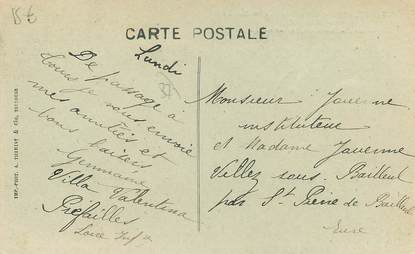 CARTE POSTALE
Lundi
De passage à
Tours je vous envoie
mes amitiés et
bons baisers
Germaine
Villa Valentina
Préfailles
Loire Infre
Monsieur Javenne
instituteur
et Madame Javenne
Villez sous Bailleul
par St Pierre de Bailleul
Eure
IMP.-PHOT. A. THIRIAT & Cie, TOULOUSE